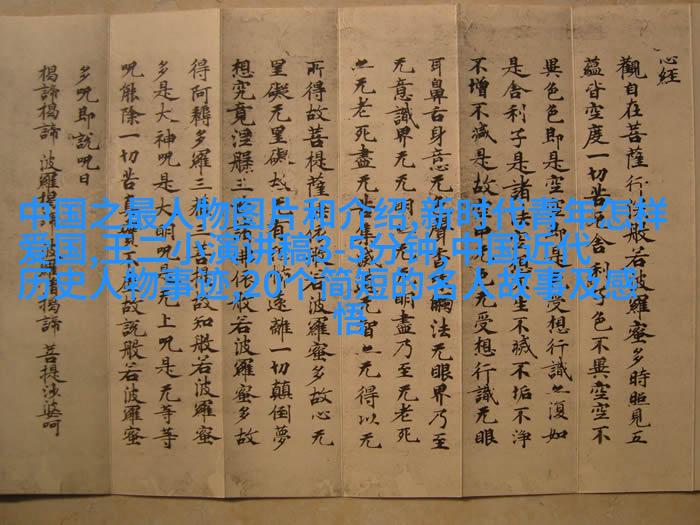 心经
觀自在菩薩行般若波羅蜜多時照見五
蘊皆空度一切苦厄舍利色不異空空不
異色色即是空即是受想行識亦復如
是舍利子是諸法空生不滅不垢不淨
不增不減是故中无受想行識无眼
耳鼻舌身意无聲香觸法无眼界乃至
无意識界无无明无明盡乃至无老死
亦无老死盡无苦集滅无智亦无得以无
所得故菩提薩般若波羅蜜多故心无
罣礙无罣礙故有遠離一切顛倒夢
想究竟涅槃三佛依般若波羅蜜多故
得阿耨多羅三三菩提故知般若波羅蜜
多是大神咒是大明咒是无上咒是无等等
咒能除一切苦真實不故說般若波羅蜜
多咒即說咒曰
揭諦揭諦 波羅揭 波羅揭諦 菩提婆呵
中国之最人物图片和介绍,新时代青年怎样
爱国,王二小演讲稿3-5分钟,中国近代
历史人物事迹,20个简短的名人故事及感
悟